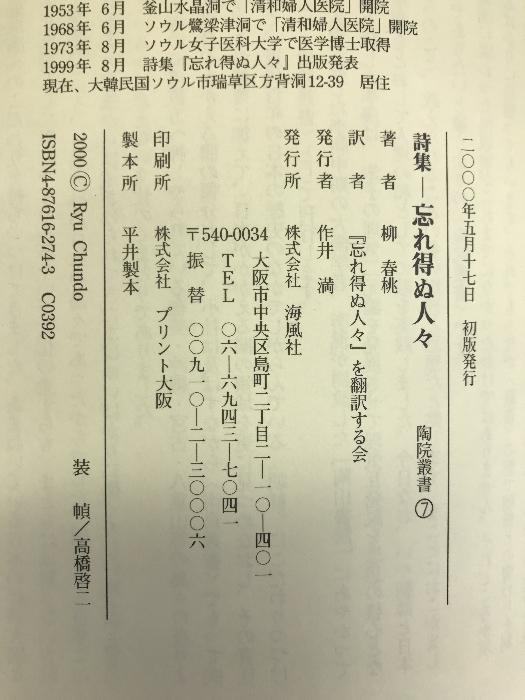 1953年 6月 釜山水晶洞で「清和婦人医院」開院
1968年 6月 ソウル鷺梁津洞で「清和婦人医院」開院
1973年 8月 ソウル女子医科大学で医学博士取得
1999年 8月 詩集『忘れ得ぬ人々』出版発表
現在、大韓民国ソウル市瑞草区方背洞12-39 居住
二〇〇〇年五月十七日 初版発行
詩集―忘れ得ぬ人々 陶院叢書⑦
著者 柳 春桃
訳者 『忘れ得ぬ人々』を翻訳する会
発行者 作井 満
発行所 株式会社 海風社
大阪市中央区島町二丁目二―一〇―四〇一
〒540-0034
TEL 〇六―六九四三―七〇四一
振替 〇〇九一〇―二―三〇〇〇六
印刷所 株式会社 プリント大阪
製本所 平井製本
2000 © Ryu Chundo
ISBN4-87616-274-3 C0392
装幀／高橋啓二